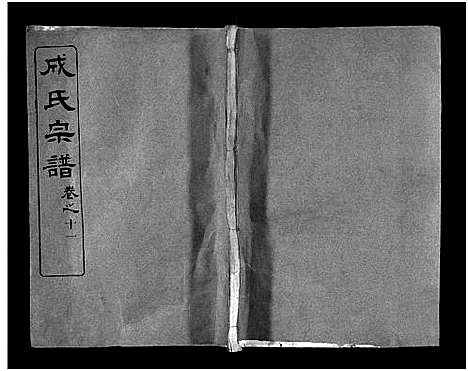 成氏宗譜
卷之十一